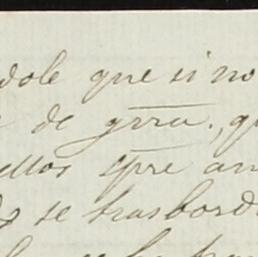 dole que si no
de grra., q
ellos spre an
se trasbord